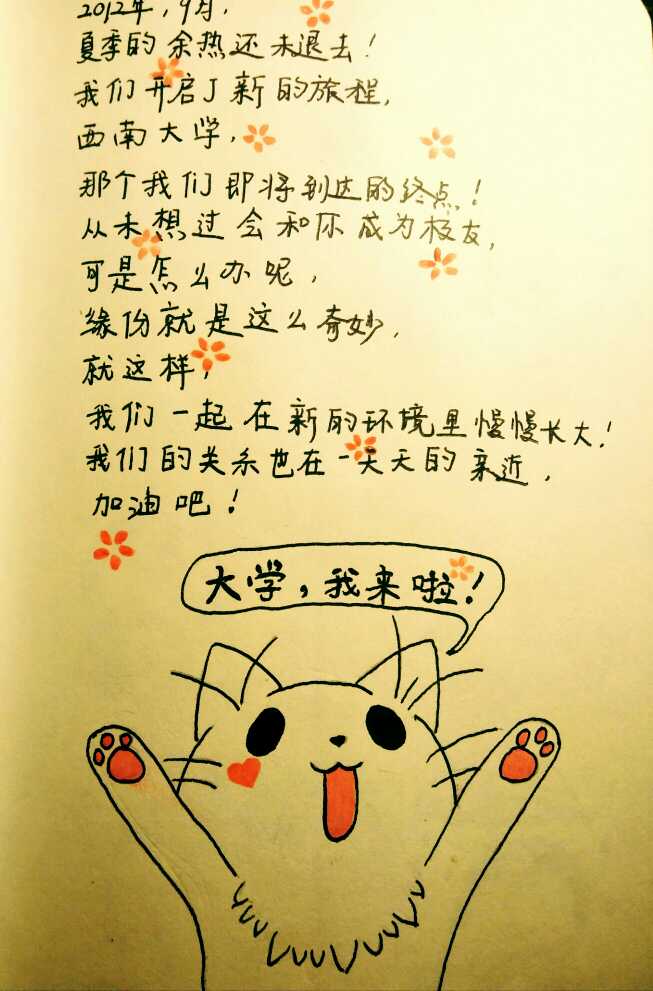 2012年,9月,
夏季的余热还未退去!
我们开启了新的旅程,
西南大学,
那个我们即将到达的终点!
从未想过会和你成为极友,
可是怎么办呢,
缘份就是这么奇妙,
就这样,
我们一起在新的环境里慢慢长大!
我们的关系也在一天天的亲近,
加油吧!
大学,我来啦!